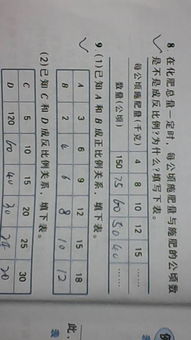 8 在化肥总量一定时，每公顷施肥量与施肥的公顷数
是不是成反比例？为什么？填写下表。
每公顷施肥量（千克） 4 8 10 12 15 ……
数量（公顷） 150 75 60 50 40 ……
9 (1)已知 A 和 B 成正比例关系，填下表。
A 3 6 9 12 15 18
B 2 4 6 8 10 12
(2)已知 C 和 D 成反比例关系，填下表。
C 5 10 15 20 25 30
D 120 60 40 30 24 20
此，
表
例